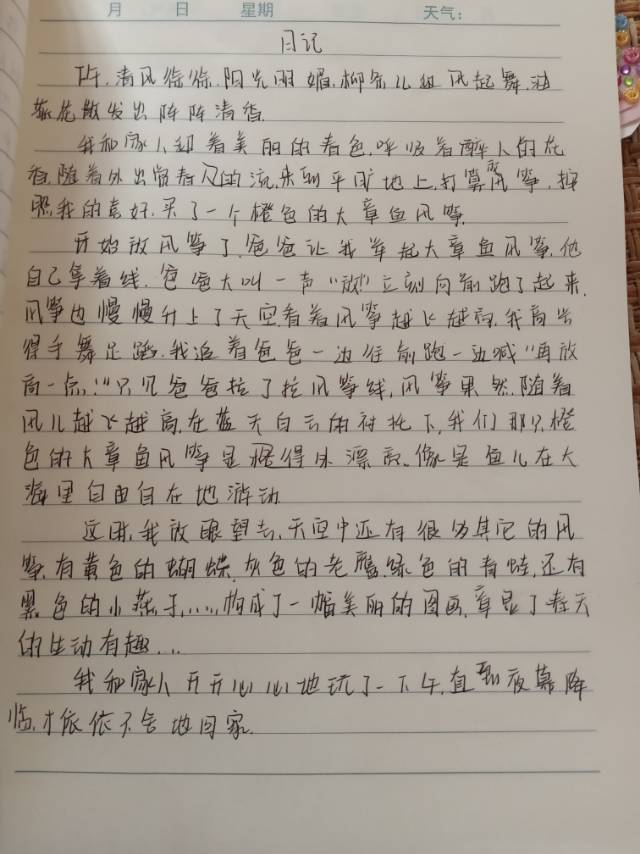 月 日 星期 天气:
日记
下午,清风徐徐,阳光明媚,柳条儿组风起舞,油
菜花散发出阵阵清香.
我和家人迎着美丽的春色,呼吸着醉人的花
香,随着外出赏春人的流,来到平旷地上,打算放风筝,按
照我的喜好,买了一个橙色的大章鱼风筝.
开始放风筝了,爸爸让我举起大章鱼风筝,他
自己拿着线,爸爸大叫一声“放”立刻向前跑了起来,
风筝也慢慢升上了天空,看着风筝越飞越高,我高兴
得手舞足蹈,我追着爸爸一边往前跑一边喊“再放
高一点!”只见爸爸拉了拉风筝线,风筝果然随着
风儿越飞越高,在蓝天白云的衬托下,我们那只橙
色的大章鱼风筝显得得外漂亮。像是鱼儿在大
海里自由自在地游动
这时,我放眼望去,天空中还有很多其它的风
筝,有黄色的蝴蝶,灰色的老鹰,绿色的青蛙,还有
黑色的小燕子……,构成了一幅美丽的图画,章显了春天
的生动有趣...
我和家人开开心心地玩了一下午,直到夜幕降
临,才依依不舍地回家.